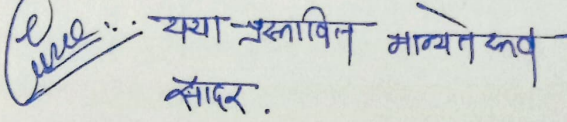 यथा प्रस्तावित मान्यतेस्तव
सादर.